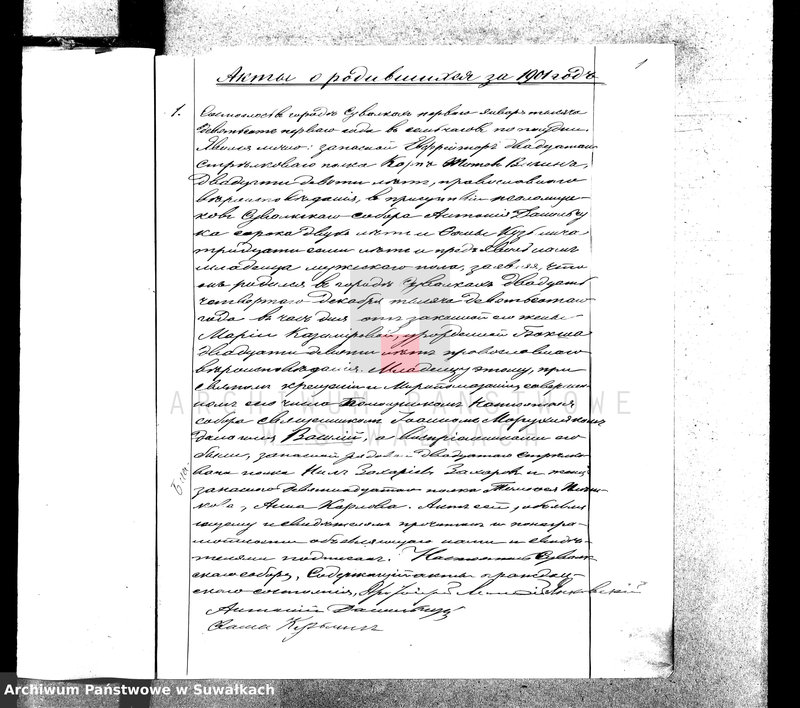 1
Акты о родившихся за 1901 годъ
1. Состоялось въ городѣ Сувалкахъ перваго января тысяча
девятьсотъ перваго года въ семь часовъ по полудни.
Явился лично: запасной Ефрейторъ двадцатаго
Стрѣлковаго полка Карпъ Титовъ
двадцати девяти лѣтъ, православнаго
вѣроисповѣданія, въ присутствіи псаломщи-
ковъ Сувалкскаго собора Антонія
ка сорока двухъ лѣтъ и Ѳомы Кузьмича
тридцати семи лѣтъ и предъявилъ намъ
младенца мужскаго пола, заявляя, что
онъ родился въ городѣ Сувалкахъ двадцать
четвертаго Декабря тысяча девятьсотаго
года въ часъ дня отъ законной его жены
Маріи Казиміровой, урожденной
двадцати девяти лѣтъ православнаго
вѣроисповѣданія. Младенцу этому, при
святомъ крещеніи и Миропомазаніи, совершен-
номъ сего числа Помощникомъ Настоятеля
собора священникомъ Іоанномъ
дано имя Василій, а воспріемниками его
были, запасной рядовой двадцатаго стрѣлко-
ваго полка Нилъ Захаріевъ Захаровъ и жена
запаснаго девятнадцатаго полка Тимофея
кова, Анна Карлова. Актъ сей, объявля-
ющему и свидѣтелямъ прочитанъ и по негра-
мотности объявляющаго нами и свидѣ-
телями подписанъ. Настоятель Сувалк-
скаго собора, Содержащій акты граждан-
скаго состоянія,
Антоній
Ѳома Кузьмичъ
ARCHIWUM PAŃSTWOWE
W SUWAŁKACH
Archiwum Państwowe w Suwałkach